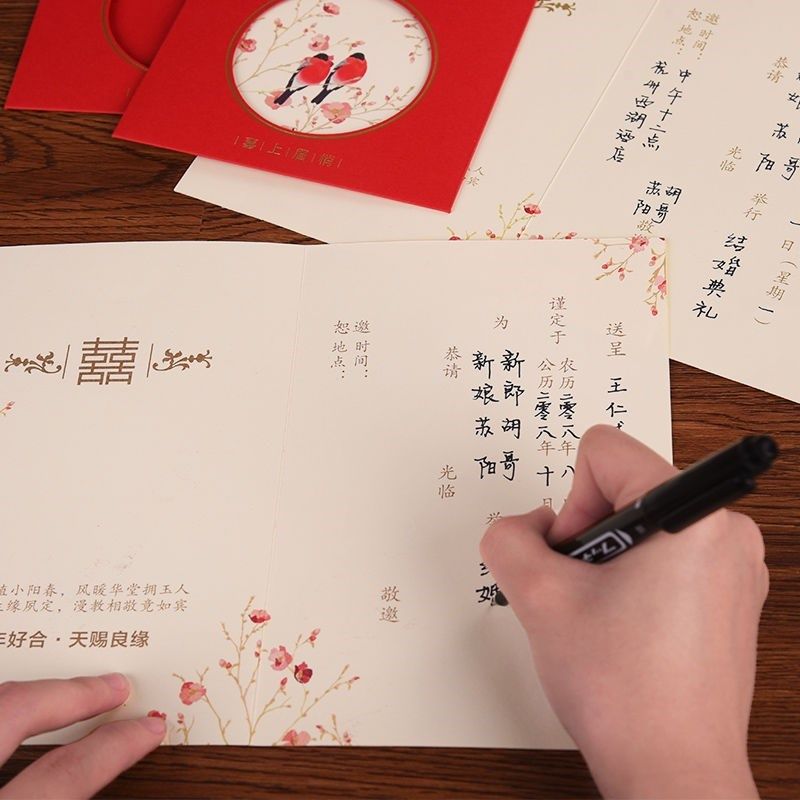 喜上眉梢
邀时间：中午十二点
恕地点：杭州西湖酒店
一（星期一）
苏
阳
举行
结婚典礼
恭请
光临
胡哥
苏阳
敬
人
宾
送呈 王仁
谨定于
农历二零一八年八
公历二零一八年十
为
新郎 胡哥
新娘 苏阳
婚
恭请 光临
敬邀
邀时间：
恕地点：
囍
小阳春，风暖华堂拥玉人
缘夙定，漫教相敬竟如宾
年好合·天赐良缘